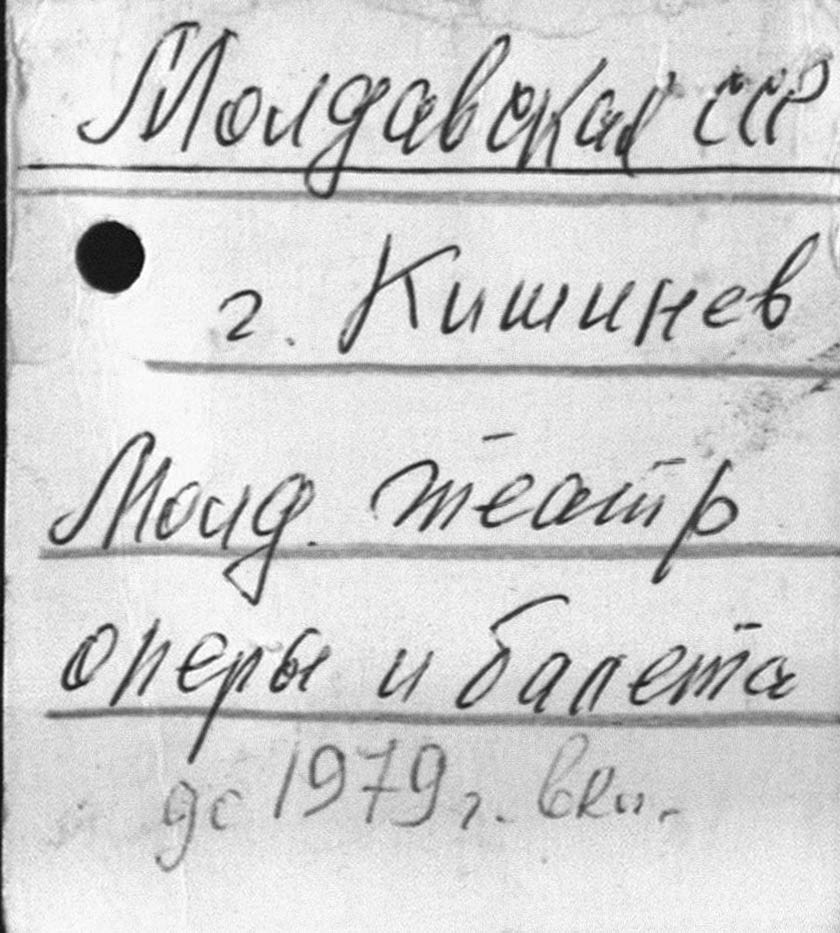 Молдавская ССР
г. Кишинев
Молд. театр
оперы и балета
до 1979 г. вкл.